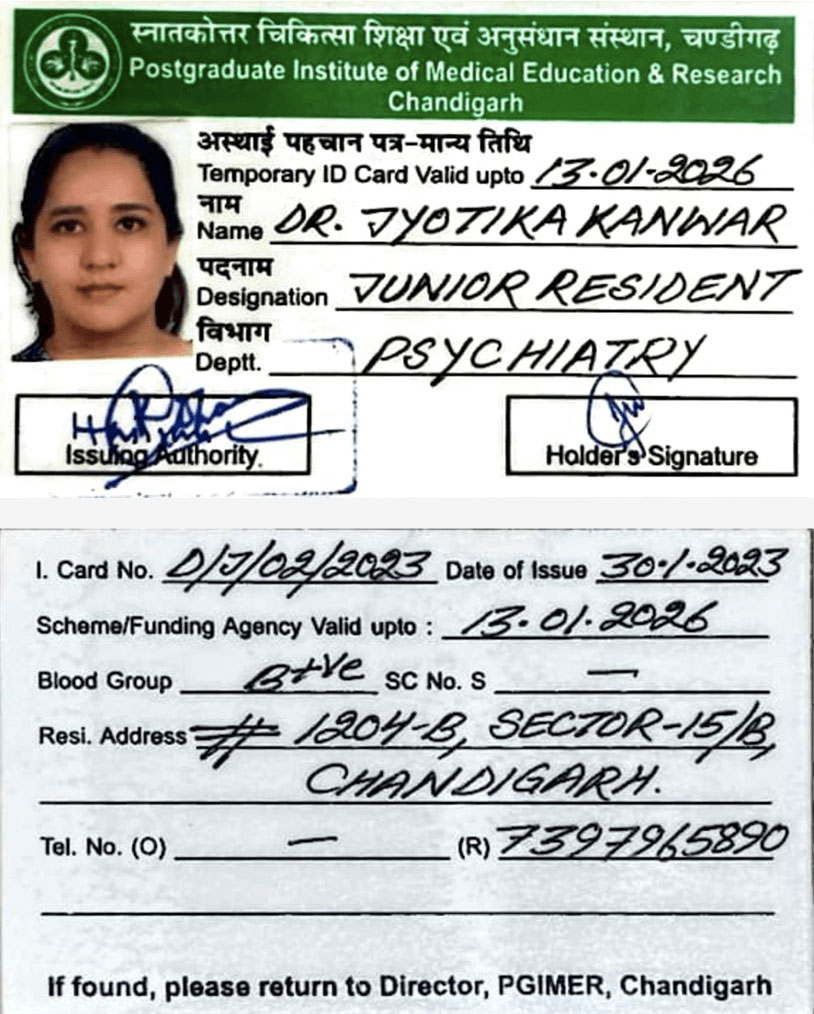 स्नातकोत्तर चिकित्सा शिक्षा एवं अनुसंधान संस्थान, चण्डीगढ़
Postgraduate Institute of Medical Education & Research
Chandigarh
अस्थाई पहचान पत्र-मान्य तिथि
Temporary ID Card Valid upto 13-01-2026
नाम
Name DR. JYOTIKA KANWAR
पदनाम
Designation JUNIOR RESIDENT
विभाग
Deptt. PSYCHIATRY
Issuing Authority.
Holder's Signature
I. Card No. D/J/02/2023 Date of Issue 30-1-2023
Scheme/Funding Agency Valid upto : 13.01.2026
Blood Group B+ve SC No. S —
Resi. Address # 1204-B, SECTOR-15/B,
CHANDIGARH.
Tel. No. (O) — (R) 7397965890
If found, please return to Director, PGIMER, Chandigarh